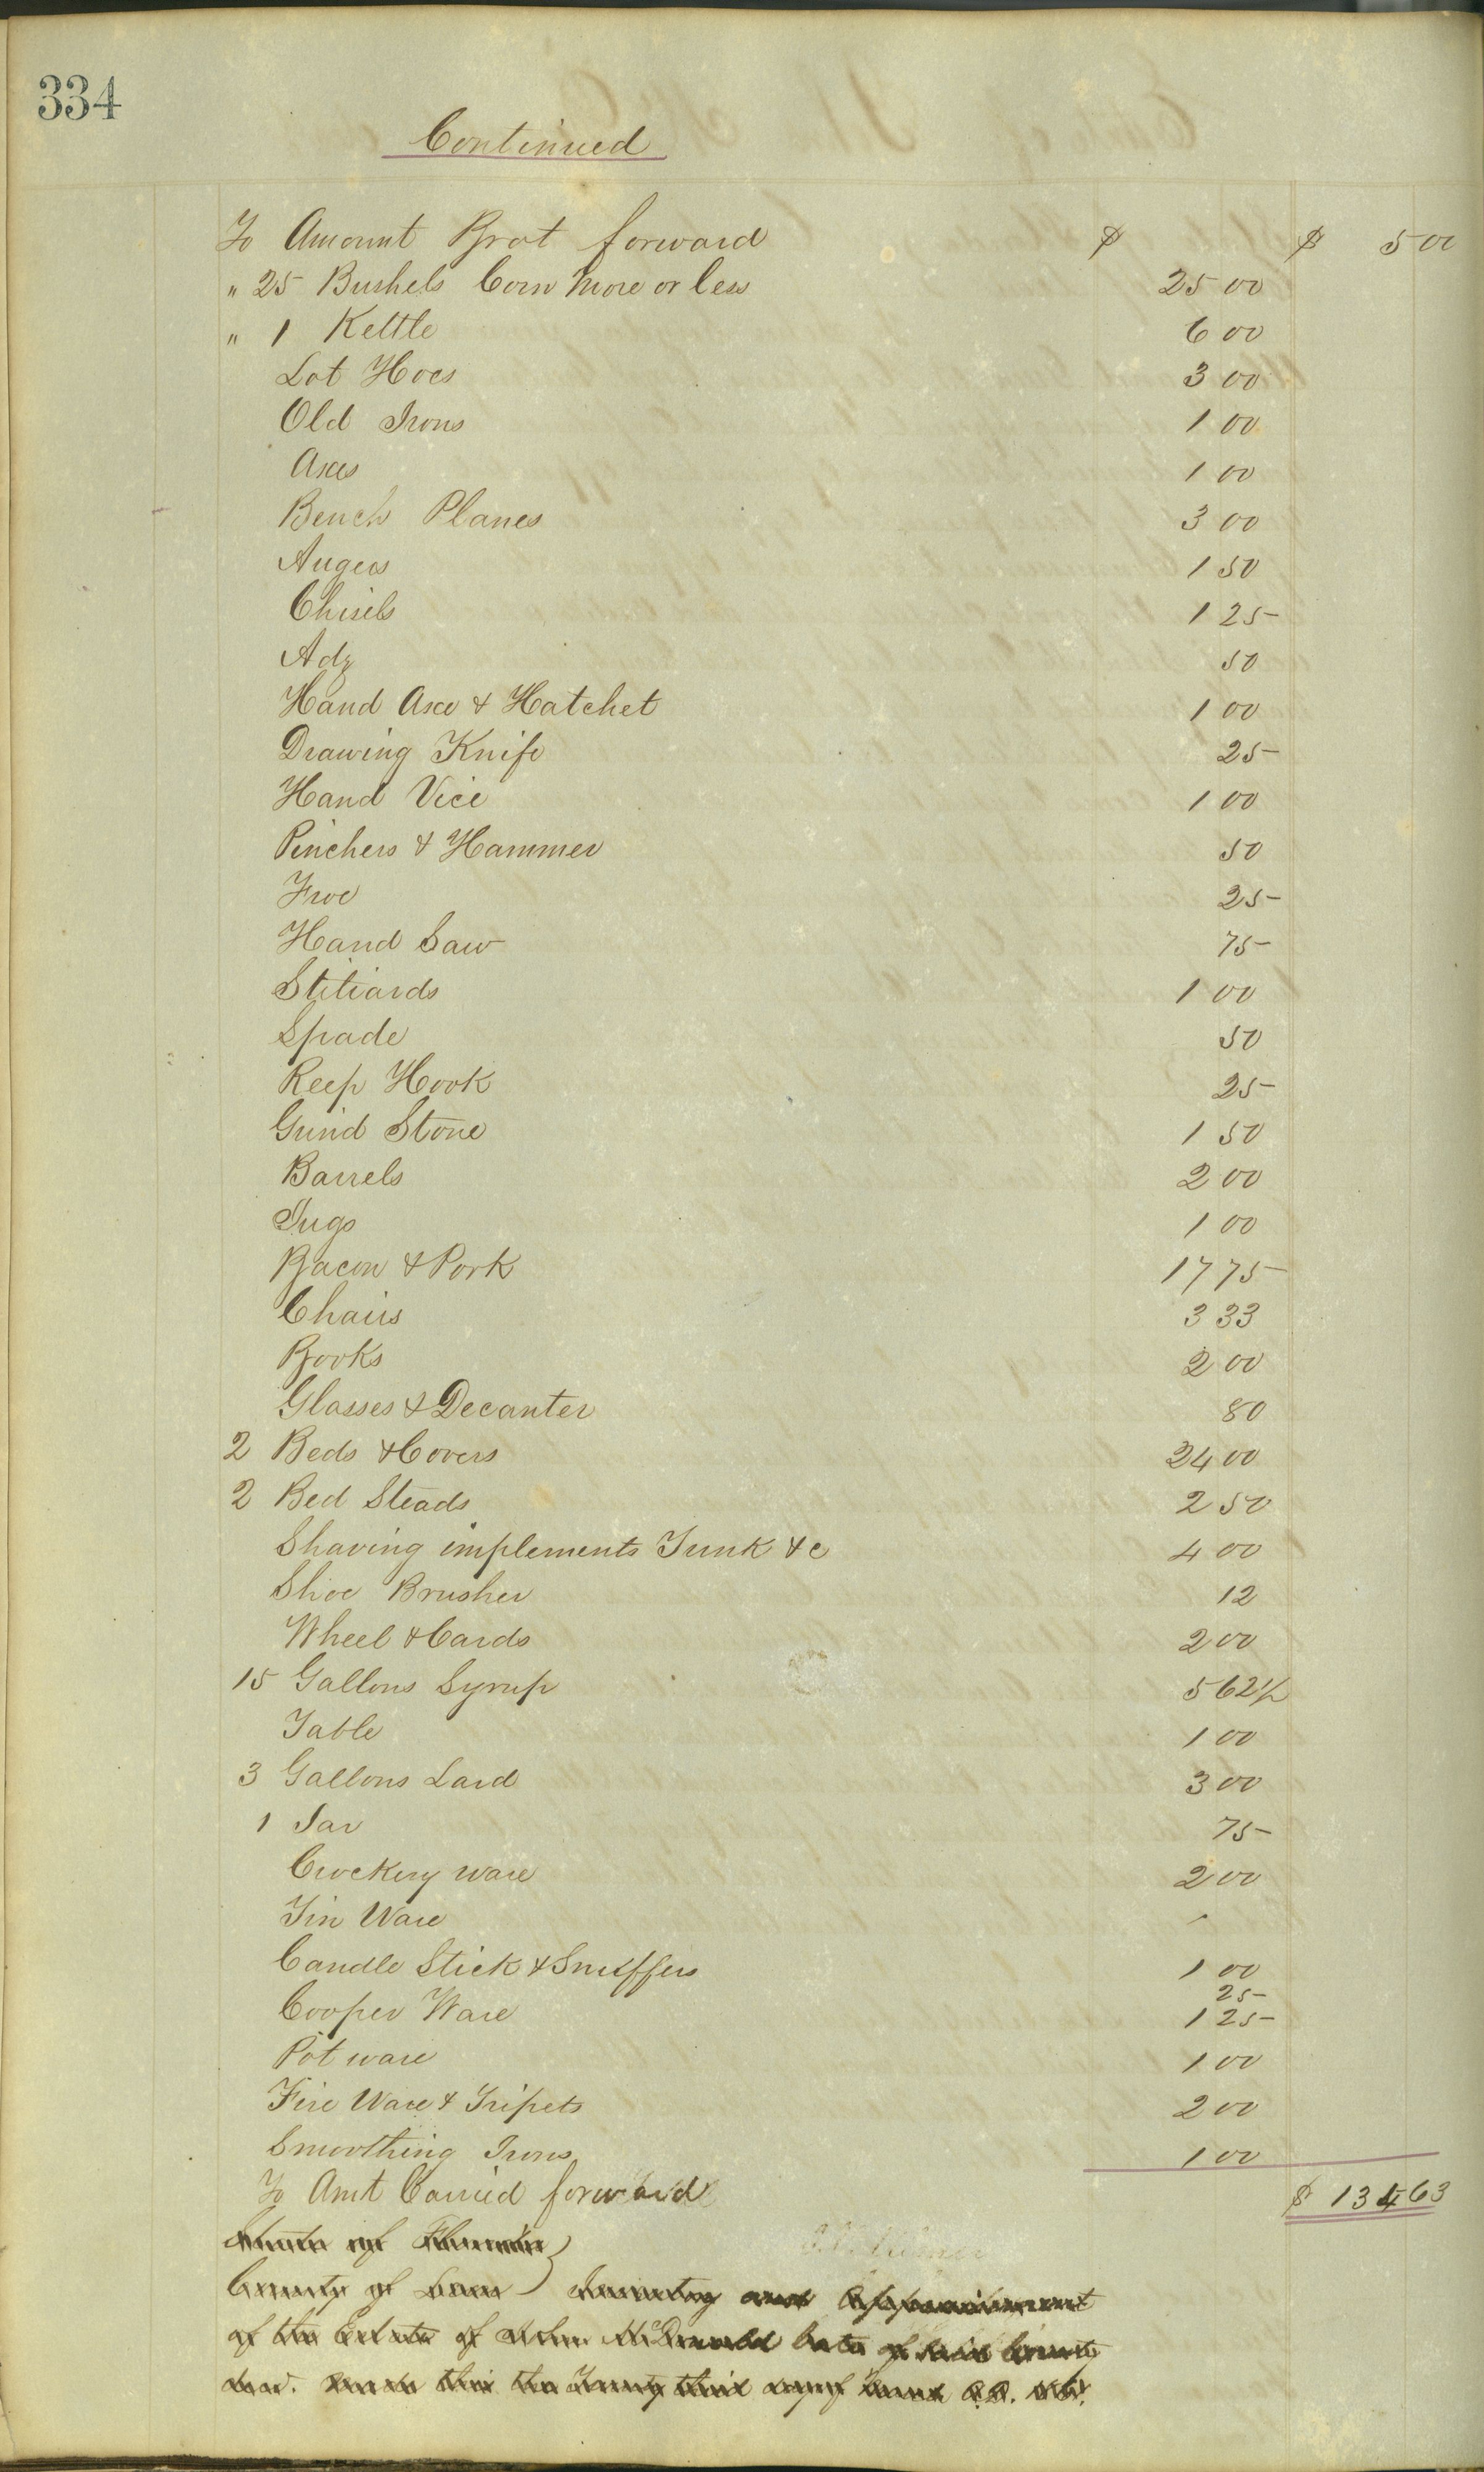 334
Continued
To Amount Brot forward $ $ 5 00
" 25 Bushels Corn more or less 25 00
" 1 Kettle 6 00
Lot Hoes 3 00
Old Irons 1 00
Axes 1 00
Bench Planes 3 00
Augers 1 50
Chisels 1 25
Adz 50
Hand Axe & Hatchet 1 00
Drawing Knife 25
Hand Vice 1 00
Pinchers & Hammer 50
Froe 25
Hand Saw 75
Stiliards 1 00
Spade 50
Reep Hook 25
Grind Stone 1 50
Barrels 2 00
Jugs 1 00
Bacon & Pork 17 75
Chairs 3 33
Books 2 00
Glasses & Decanter 80
2 Beds & Covers 24 00
2 Bed Steads 2 50
Shaving implements Trunk &c 4 00
Shoe Brushes 12
Wheel & Cards 2 00
15 Gallons Syrup 5 62 1/2
Table 1 00
3 Gallons Lard 3 00
1 Jar 75
Crockery ware 2 00
Tin Ware
Candle Stick & Snuffers 1 00
25
Cooper Ware 1 25
Pot ware 1 00
Fire Ware & Tripets 2 00
Smoothing Irons 1 00
To Amt Carried forward $ 134 63
State of Florida
County of Inventory and Appraisement
of the Estate of John McDonald late of said County
decd. made this the Twenty third day of A.D.